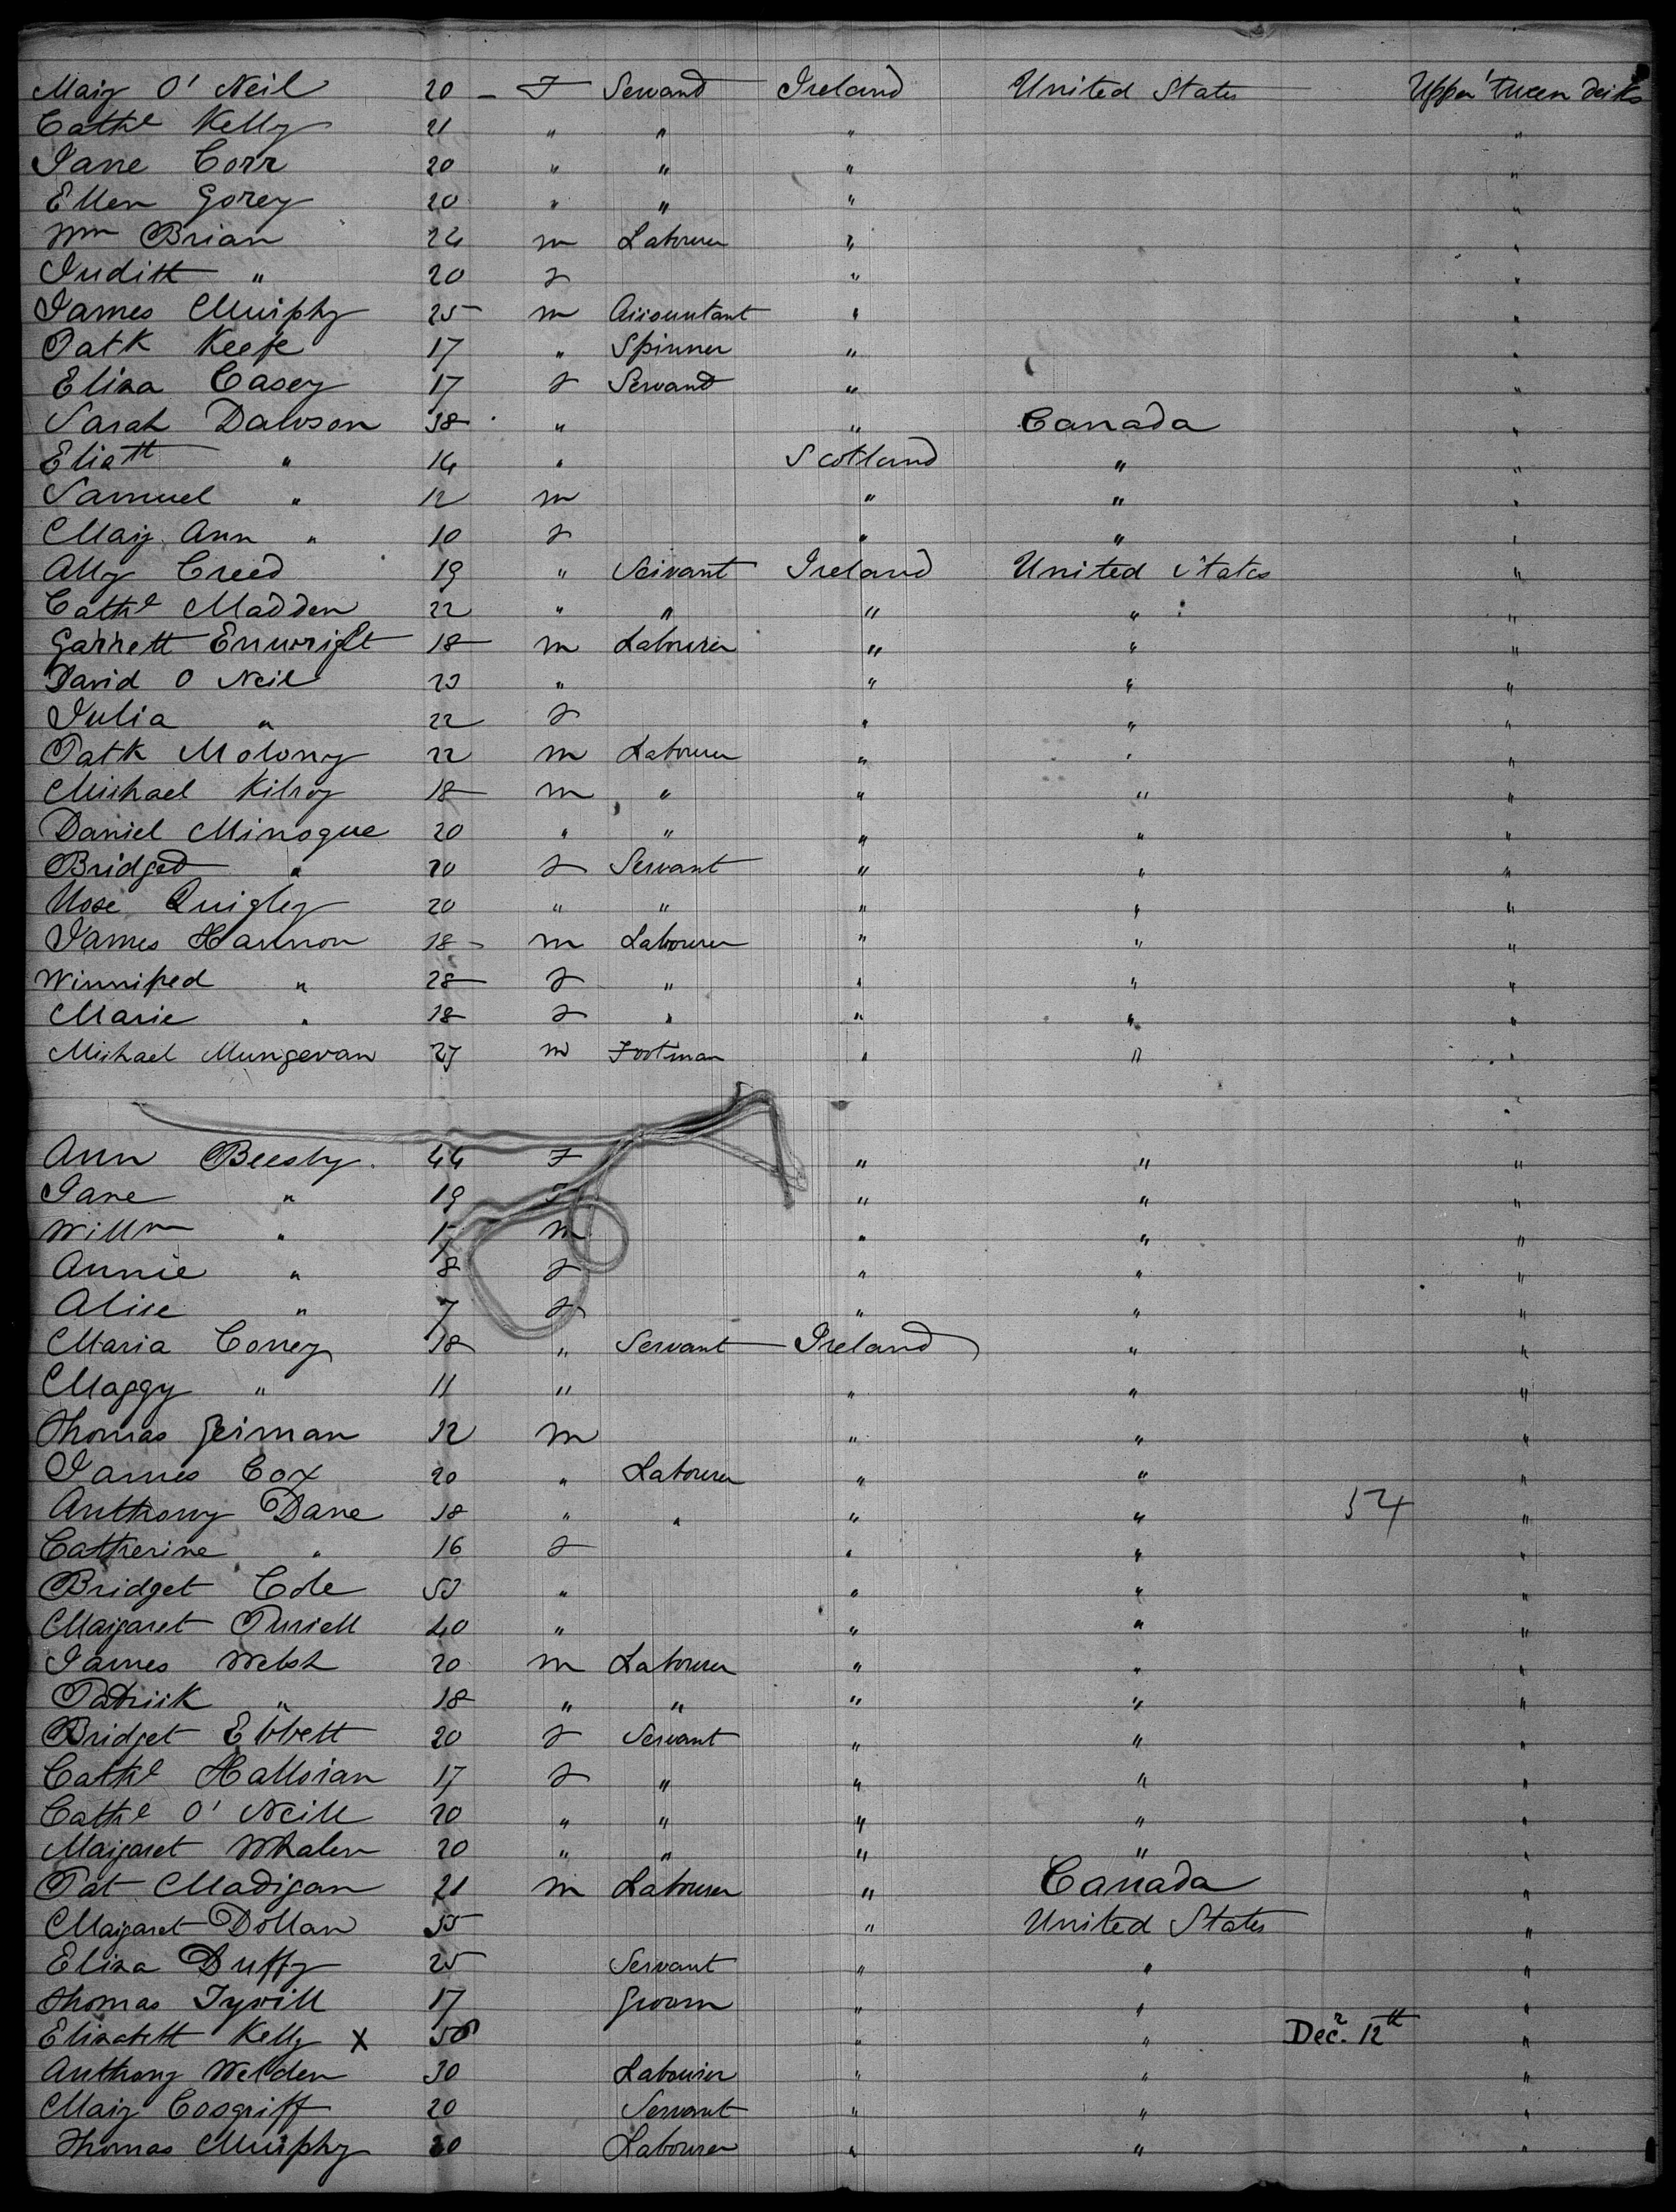 Mary O' Neil 20 - F Servant Ireland United States Upper 'tween decks
Cathe Kelly 21 " " " "
Jane Corr 20 " " " "
Ellen Gorey 20 " " " "
Wm Brian 24 m Labourer " "
Judith " 20 f " "
James Murphy 25 m Accountant " "
Patk Keefe 17 " Spinner " "
Eliza Casey 17 f Servant " "
Sarah Dawson 38 " " Canada "
Elizth " 14 " Scotland " "
Samuel " 12 m " " "
Mary Ann " 10 f " " "
Ally Creed 19 " Servant Ireland United States "
Cathe Madden 22 " " " " "
Garrett Enwright 18 m Labourer " " "
David O Neil 23 " " " "
Julia " 22 f " " "
Patk Molony 22 m Labourer " " "
Michael Kilroy 18 m " " " "
Daniel Minogue 20 " " " " "
Bridged " 20 f Servant " " "
Rose Quigley 20 " " " " "
James Hannon 18 - m Labourer " " "
Winnifred " 28 f " " " "
Marie " 18 f " " " "
Michael Mungevan 27 m Footman " " "
Ann Beesly. 44 F " " "
Jane " 19 F " " "
Willm " m " " "
Annie " 8 f " " "
Alice " 7 f " " "
Maria Correy 18 " Servant Ireland " "
Maggy " 11 " " " "
Thomas German 12 m " " "
James Cox 20 " Labourer " " "
Anthony Dane 18 " " " " 54 "
Catherine " 16 f " " "
Bridget Cole 53 " " " "
Margaret Purcell 40 " " " "
James Welsh 20 m Labourer " " "
Patrick " 18 " " " " "
Bridget Ebbett 20 f Servant " " "
Cathe Halloran 17 f " " " "
Cathe O' Neill 20 " " " " "
Margaret Whalen 20 " " " " "
Pat Madigan 21 m Labourer " Canada "
Margaret Dollan 55 " United States "
Eliza Duffy 25 Servant " " "
Thomas Tyrill 17 Groom " " "
Elizabeth Kelly X 50 " " Decr. 12th "
Anthony Welden 30 Labourer " " "
Mary Cosgriff 20 Servant " " "
Thomas Murphy 20 Labourer " " "